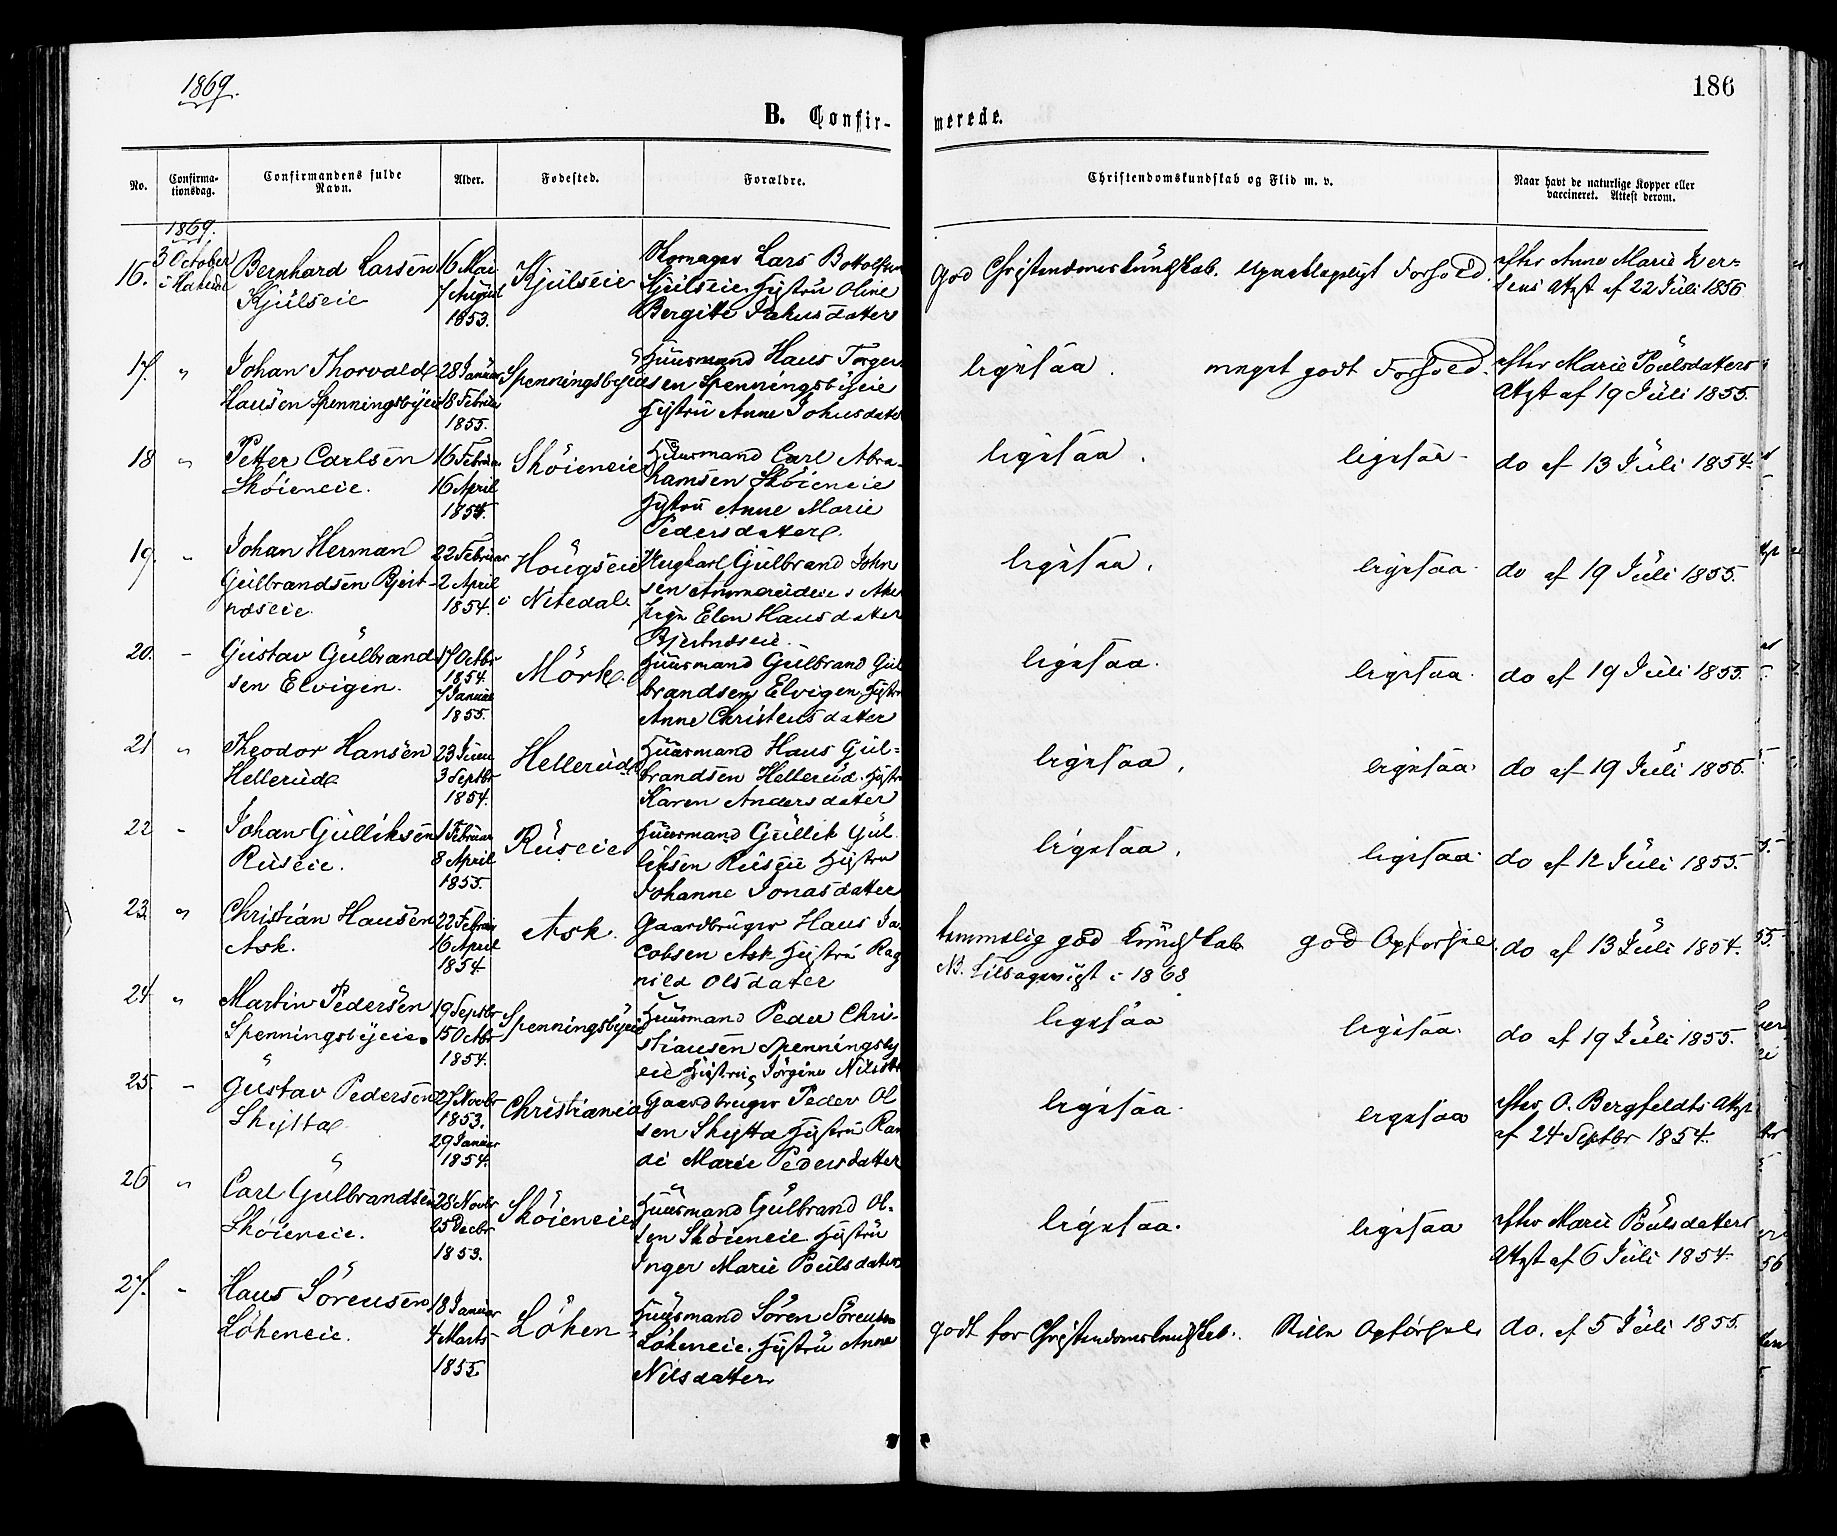 1869.
186
B. Confir-
merede.
No.
Confirma-
tionsdag.
Confirmandens fulde
Navn.
Alder.
Fødested.
Forældre.
Christendomskundskab og Flid m. v.
Naar havt de naturlige Kopper eller
vaccineret. Attest derom.
1869.
16.
3 October
Bernhard Larsen
Kjulseie
16 Mai
7 August
1853.
Kjulseie
Lars Bottolfsen
Kjulseie Hustru Oline
Bergitte
god Christendomskundskab.
Forhold.
efter Anne Marie
Attest af 22 Juli 1856
17.
"
Johan Thorvald
Hansen Spenningsbyeie
28 Januar
18 Februar
1855.
Spenningsbyeie
Huusmand Hans Torger
sen Spenningsbyeie
Hustru Anne Johnsdatter
ligesaa.
meget godt Forhold.
efter Marie Poulsdatters
Attest af 19 Juli 1855.
18
"
Petter Carlsen
Skøieneie.
16 Februar
16 April
1854.
Skøieneie
Huusmand Carl Abra-
hamsen Skøieneie
Hustru Anne Marie
Pedersdatter.
ligesaa.
ligesaa
do af 13 Juli 1854.
19.
"
Johan Herman
Gulbrandsen Bjert-
næseie.
22 Februar
2 April
1854.
Hougseie
i Nitedal
Ungkarl Gulbrand John
sen
Pige Elen Hansdatter
Bjertnæseie.
ligesaa.
ligesaa.
do af 19 Juli 1855.
20.
"
Gustav Gulbrand
sen Elvigen.
17 Octbr
1854.
7 Januar
1855.
Mørk
Huusmand Gulbrand Gul
brandsen Elvigen, Hustru
Anne Christensdatter
ligesaa.
ligesaa.
do af 19 Juli 1855.
21
"
Theodor Hansen
Hellerud
23 Juni
3 Septbr
1854.
Hellerud
Huusmand Hans Gul-
brandsen Hellerud. Hustru
Karen Andersdatter
ligesaa.
ligesaa.
do af 19 Juli 1855.
22
"
Johan Gulliksen
Ruseie.
1 Februar
8 April
1855.
Ruseie
Huusmand Gullik Gul
liksen Ruseie Hustru
Johanne Jonasdatter
ligesaa.
ligesaa.
do af 12 Juli 1855.
23.
"
Christian Hansen
Ask.
22 Februar
16 April
1854
Ask.
Gaardbruger Hans Ja
cobsen Ask Hustru Rag
nild Olsdatter
temmelig god Kundskab
god Opførsel.
NB. Tilbagevist i 1868
do af 13 Juli 1854.
24
"
Martin Pedersen
Spenningsbyeie.
19 Septbr
15 Octbr
1854.
Spenningsbyeie
Huusmand Peder Chri-
stiansen Spenningsby
eie Hustru Jørgine
ligesaa
ligesaa.
do af 19 Juli 1855.
25.
"
Gustav Pedersen
Skytta
27 Novbr
1853.
29 Januar
1854.
Christiania
Gaardbruger Peder Ol
sen Skytta Hustru Ran
di Marie Pedersdatter
ligesaa.
ligesaa
efter O. Bergfeldts Attest
af 24 Septbr 1854.
26
"
Carl Gulbrandsen
Skøieneie.
28 Novbr
25 Decbr
1853.
Skøieneie
Huusmand Gulbrand Ol-
sen Skøieneie Hustru
Inger Marie Poulsdatter
ligesaa.
ligesaa
efter Marie Poulsdatters
Attest af 6 Juli 1854.
27.
"
Hans Sørensen
Løkeneie.
18 Januar
4 Marts
1855
Løken
Huusmand Søren Sørensen
Løkeneie. Hustru Anne
Nilsdatter
godt for Christendomskundskab.
Stille Opførsel.
do. af 5 Juli 1855.